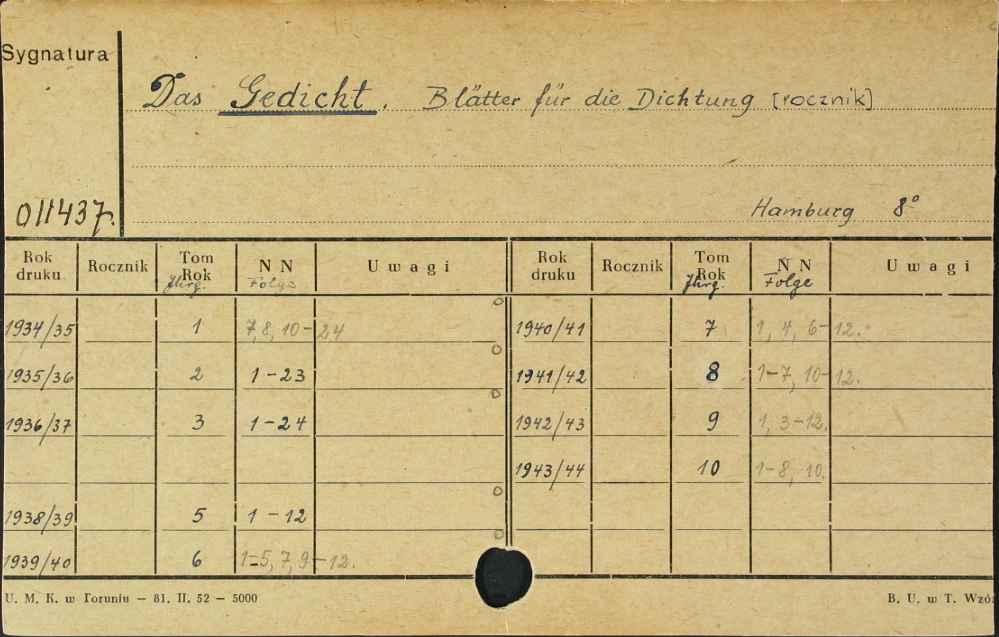 Sygnatura
Das Gedicht. Blätter für die Dichtung [rocznik]
011437.
Hamburg 8°
Rok druku Rocznik Tom Rok Jhrg. N N Folge Uwagi Rok druku Rocznik Tom Rok Jhrg. N N Folge Uwagi
1934/35 1 7, 8, 10-24 1940/41 7 1, 4, 6-12.
1935/36 2 1-23 1941/42 8 1-7, 10-12.
1936/37 3 1-24 1942/43 9 1, 3-12.
1943/44 10 1-8, 10.
1938/39 5 1-12
1939/40 6 1-5, 7, 9-12.
U. M. K. w Toruniu — 81. II. 52 — 5000 B. U. w T. Wzó